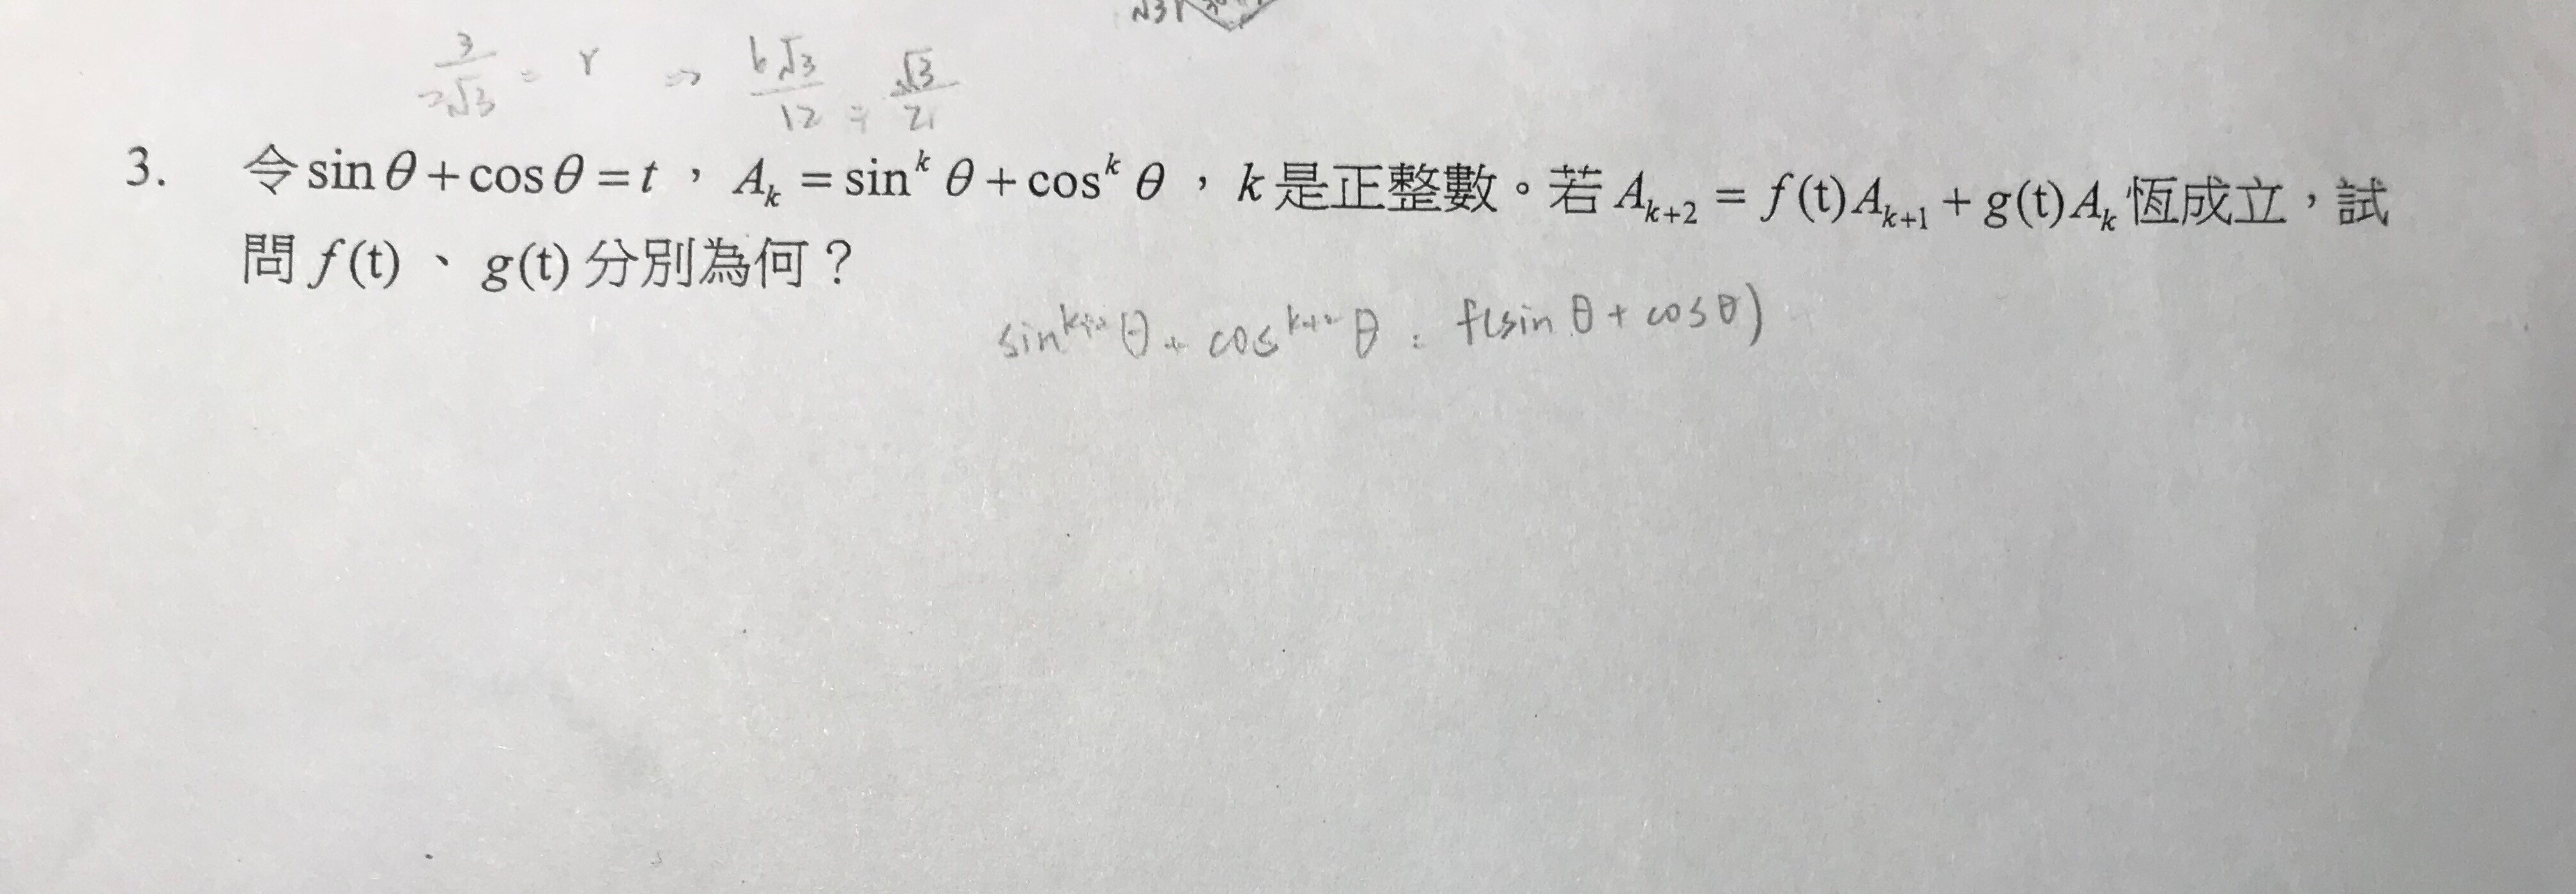 √3r
3/2√3 = r ⇒ 6√3/12 = √3/2
3. 令 sin θ + cos θ = t ，A_k = sin^k θ + cos^k θ ，k 是正整數。若 A_{k+2} = f(t)A_{k+1} + g(t)A_k 恆成立，試
問 f(t) 、 g(t) 分別為何？
sin^{k+2} θ + cos^{k+2} θ = f(sin θ + cos θ)